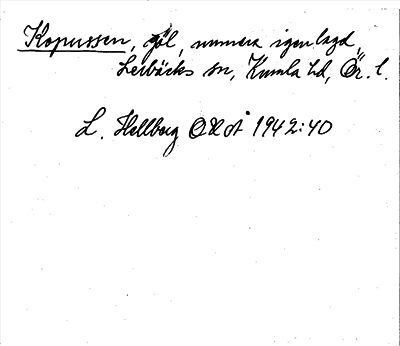 Kopussen, göl, numera igenlagd,
Lerbäcks sn, Kumla hd, Ör. l.
L. Hellberg OHÅ 1942:40